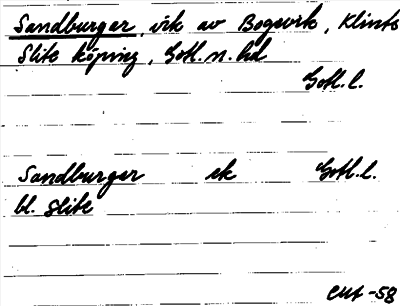 Sandburger, vik av Bogevik, Klints
Slite köping, Gotl. n. hd
Gotl. l.
Sandburger vk Gotl. l.
bl. Slite
-58